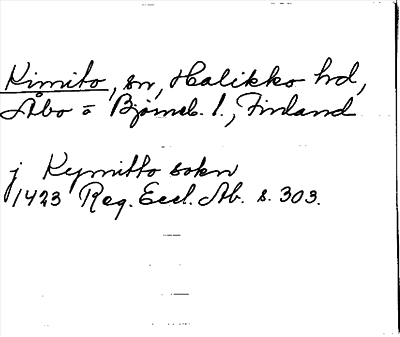 Kimito, sn, Halikko hd,
Åbo o Björneb. l., Finland
j Kymitto sokn
1423 Reg. Eccl. Ab. s. 303.